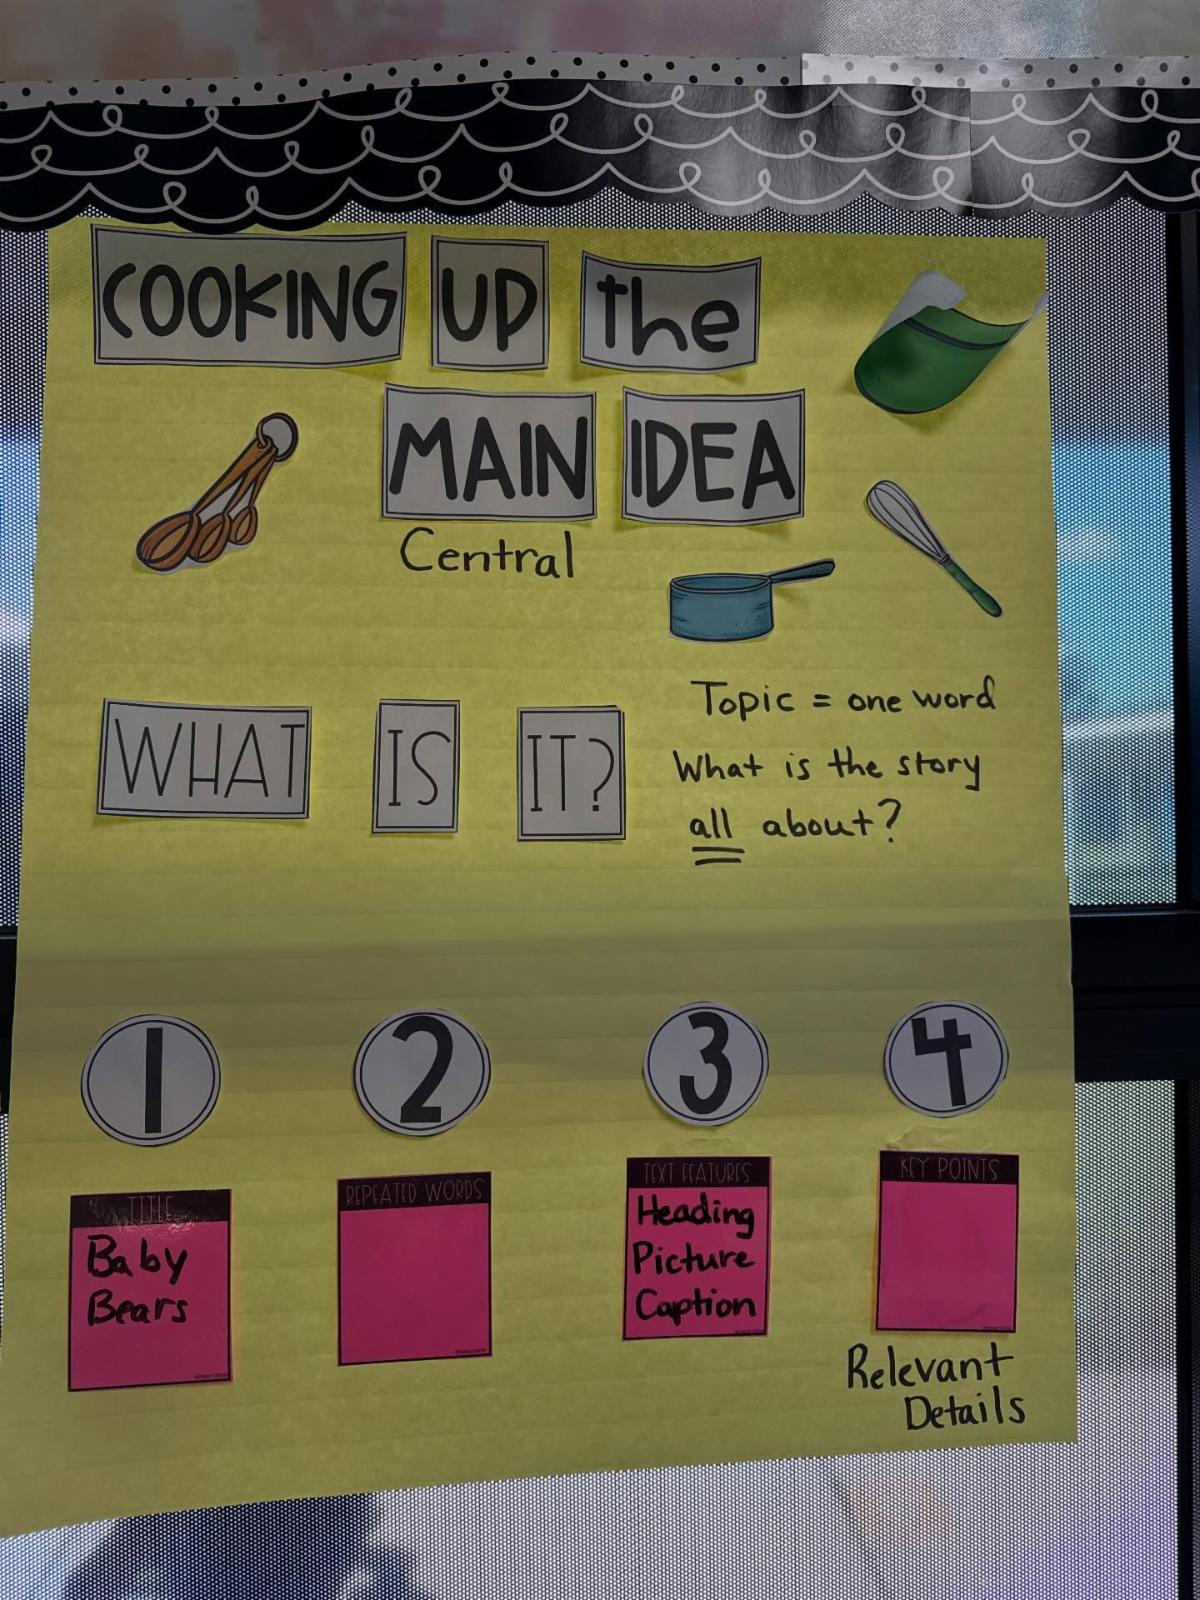 COOKING UP the
MAIN IDEA
Central
WHAT IS IT?
Topic = one word
What is the story
all about?
1
2
3
4
TITLE
Baby
Bears
REPEATED WORDS
TEXT FEATURES
Heading
Picture
Caption
KEY POINTS
Relevant
Details